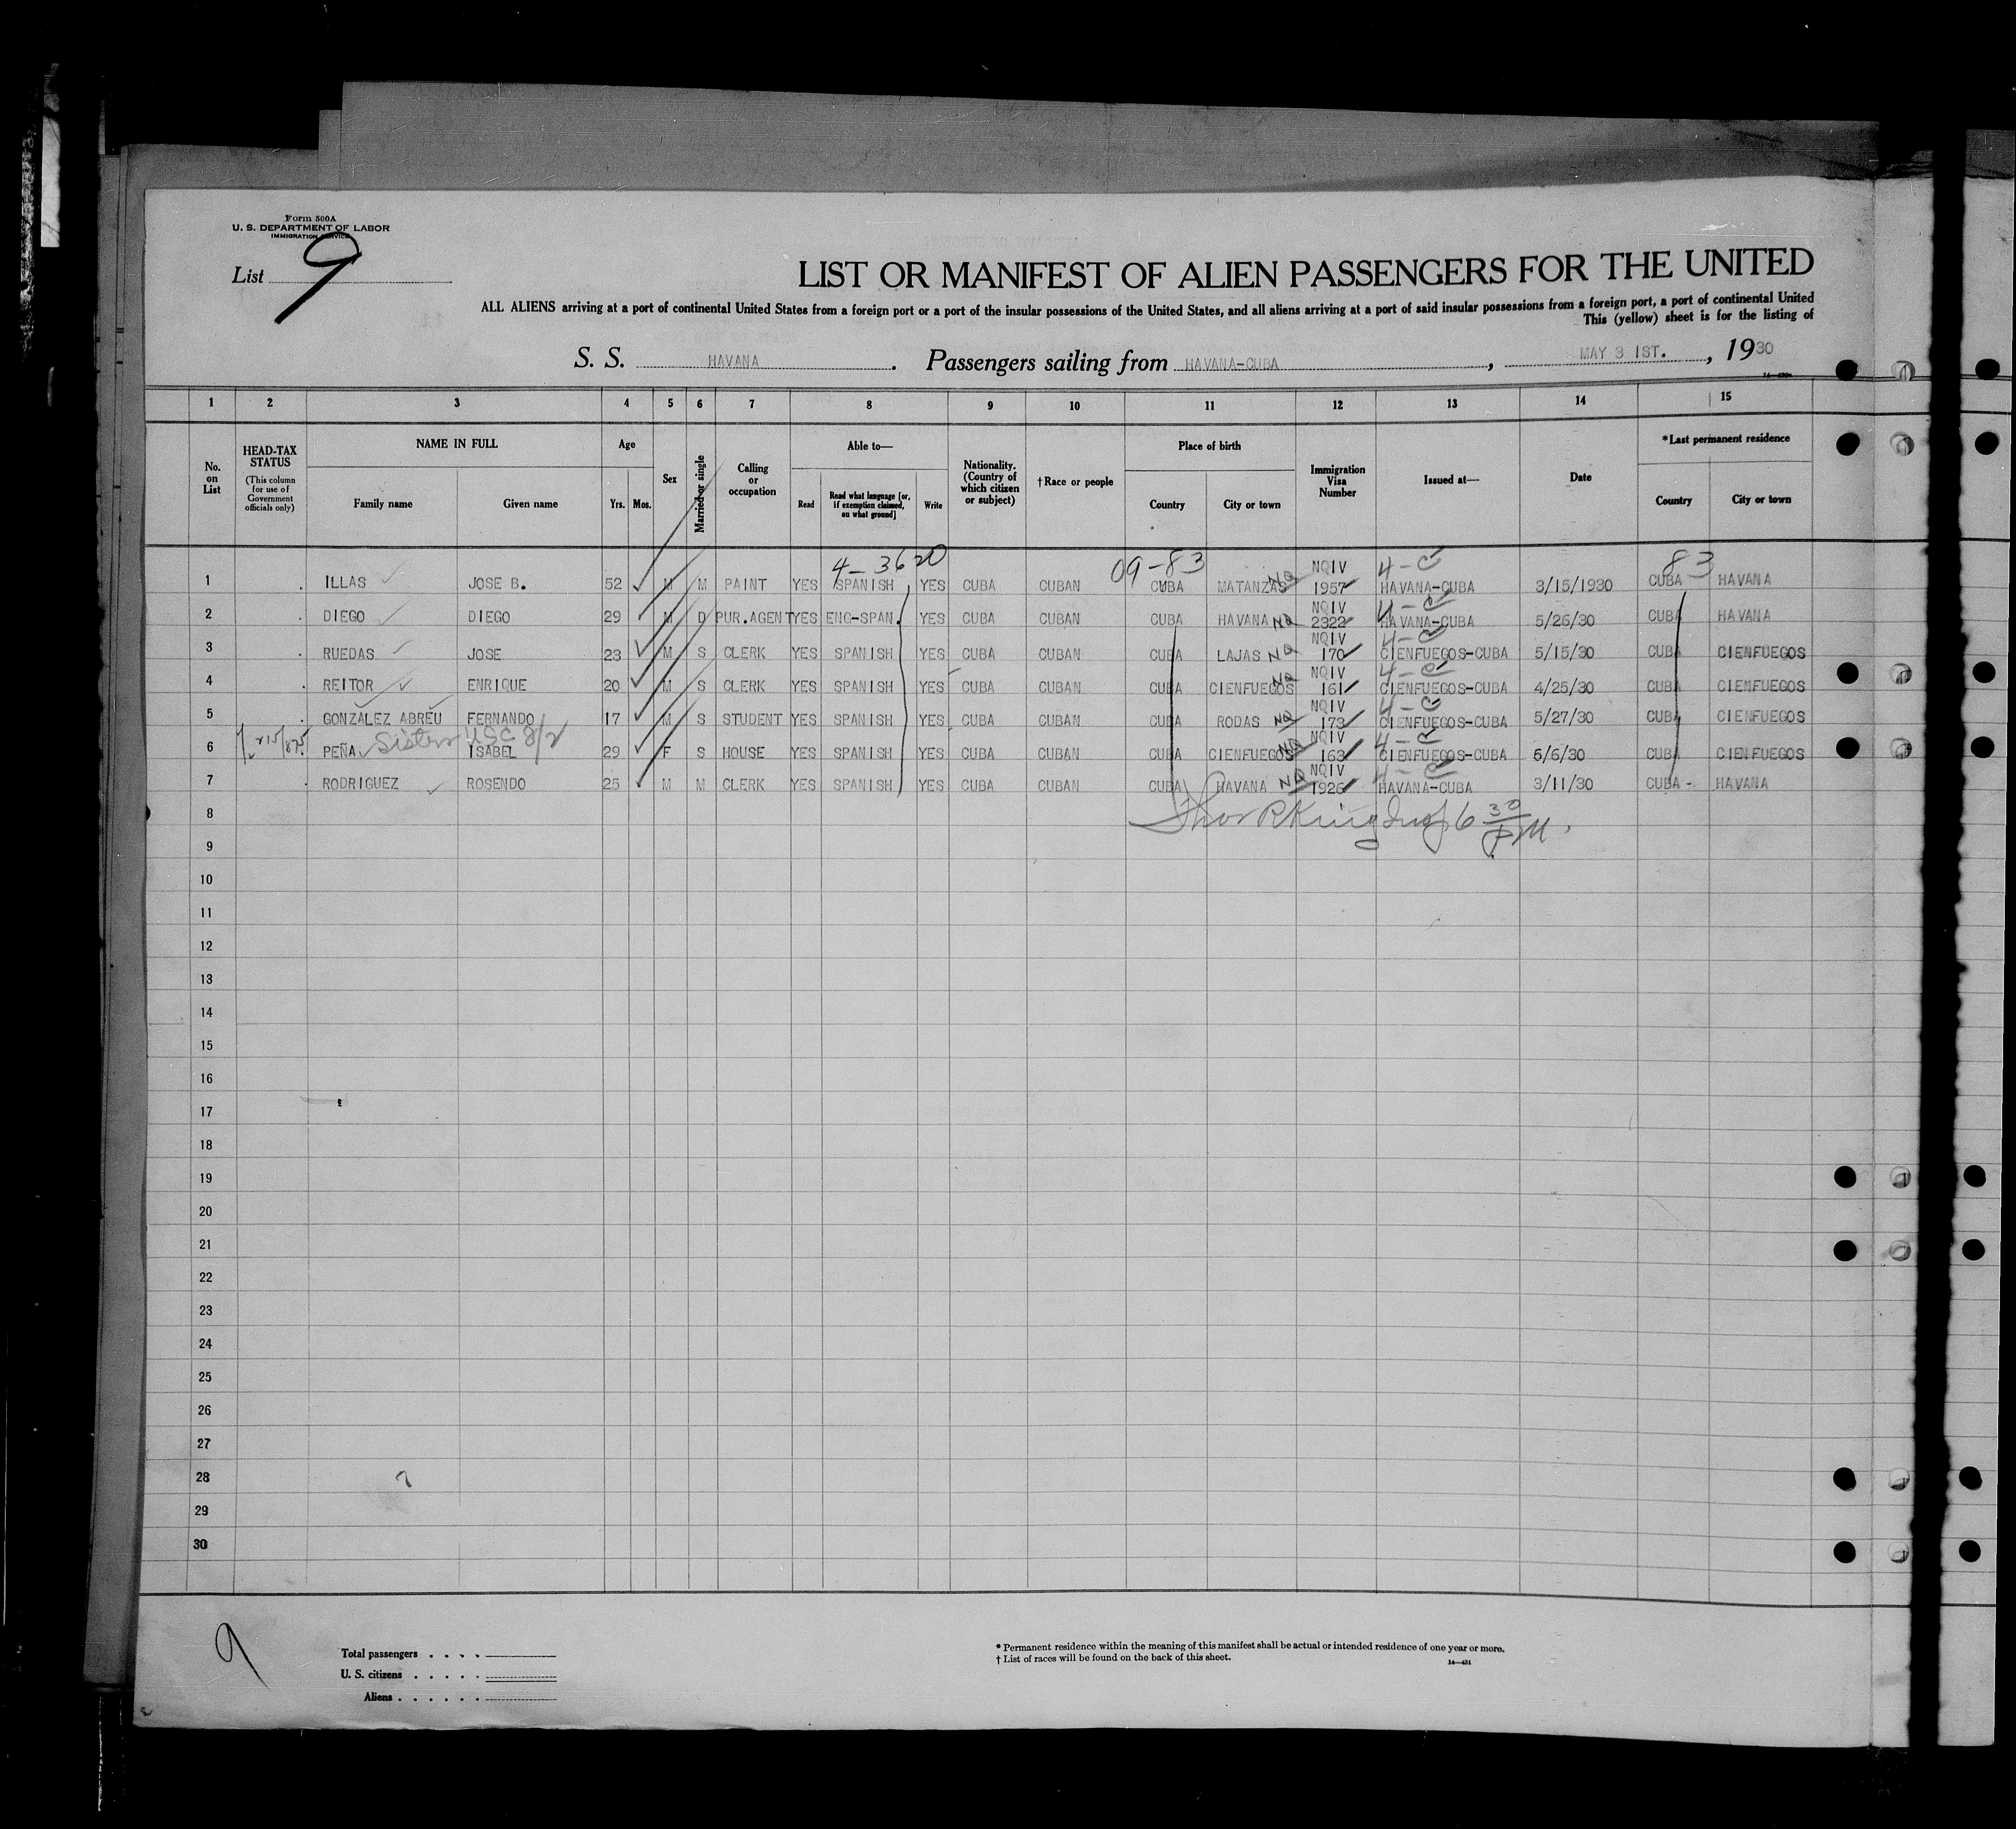 Form 500A
U. S. DEPARTMENT OF LABOR
IMMIGRATION SERVICE
List 9
LIST OR MANIFEST OF ALIEN PASSENGERS FOR THE UNITED
ALL ALIENS arriving at a port of continental United States from a foreign port or a port of the insular possessions of the United States, and all aliens arriving at a port of said insular possessions from a foreign port, a port of continental United
This (yellow) sheet is for the listing of
S. S. HAVANA. Passengers sailing from HAVANA-CUBA, MAY 3 1ST., 1930
1 2 3 4 5 6 7 8 9 10 11 12 13 14 15
No. on List
HEAD-TAX STATUS (This column for use of Government officials only)
NAME IN FULL Family name Given name
Age Yrs. Mos.
Sex
Married or single
Calling or occupation
Able to— Read Read what language [or, if exemption claimed, on what ground] Write
Nationality. (Country of which citizen or subject)
†Race or people
Place of birth Country City or town
Immigration Visa Number
Issued at—
Date
*Last permanent residence Country City or town
4-3620 09-83 83
1 ILLAS JOSE B. 52 M M PAINT YES SPANISH YES CUBA CUBAN CUBA MATANZAS NQ NQIV 1957 4-C HAVANA-CUBA 3/15/1930 CUBA HAVANA
2 DIEGO DIEGO 29 M D PUR.AGENT YES ENG-SPAN. YES CUBA CUBAN CUBA HAVANA NQ NQIV 2322 4-C HAVANA-CUBA 5/26/30 CUBA HAVANA
3 RUEDAS JOSE 23 M S CLERK YES SPANISH YES CUBA CUBAN CUBA LAJAS NQ NQIV 170 4-C CIENFUEGOS-CUBA 5/15/30 CUBA CIENFUEGOS
4 REITOR ENRIQUE 20 M S CLERK YES SPANISH YES CUBA CUBAN CUBA CIENFUEGOS NQ NQIV 161 4-C CIENFUEGOS-CUBA 4/25/30 CUBA CIENFUEGOS
5 GONZALEZ ABREU FERNANDO 17 M S STUDENT YES SPANISH YES CUBA CUBAN CUBA RODAS NQ NQIV 173 4-C CIENFUEGOS-CUBA 5/27/30 CUBA CIENFUEGOS
6 PEÑA Sister USC ISABEL 29 F S HOUSE YES SPANISH YES CUBA CUBAN CUBA CIENFUEGOS NQ NQIV 163 4-C CIENFUEGOS-CUBA 5/6/30 CUBA CIENFUEGOS
7 RODRIGUEZ ROSENDO 25 M M CLERK YES SPANISH YES CUBA CUBAN CUBA HAVANA NQ NQIV 1926 4-C HAVANA-CUBA 3/11/30 CUBA - HAVANA
8
9
10
11
12
13
14
15
16
17
18
19
20
21
22
23
24
25
26
27
28
29
30
9
Total passengers
U. S. citizens
Aliens
* Permanent residence within the meaning of this manifest shall be actual or intended residence of one year or more.
† List of races will be found on the back of this sheet.
14—431